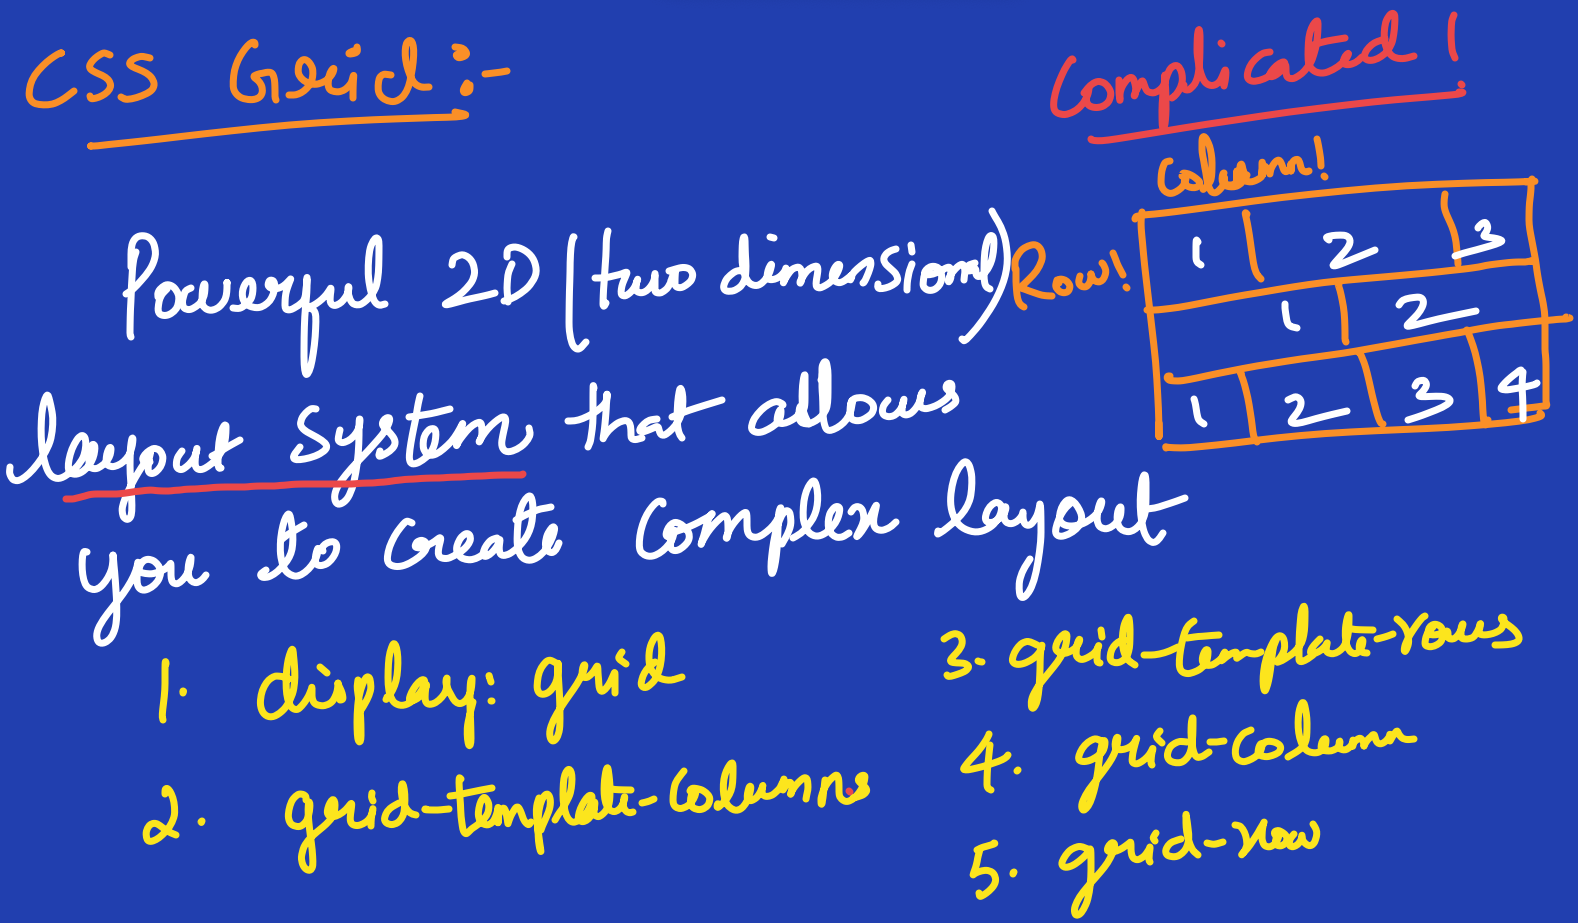 CSS Grid :-
Complicated !
Column!
Powerful 2D (two dimensional)
Row!
1 2 3
1 2
1 2 3 4
layout system that allows
you to create complex layout
1. display: grid
2. grid-template-columns
3. grid-template-rows
4. grid-column
5. grid-row